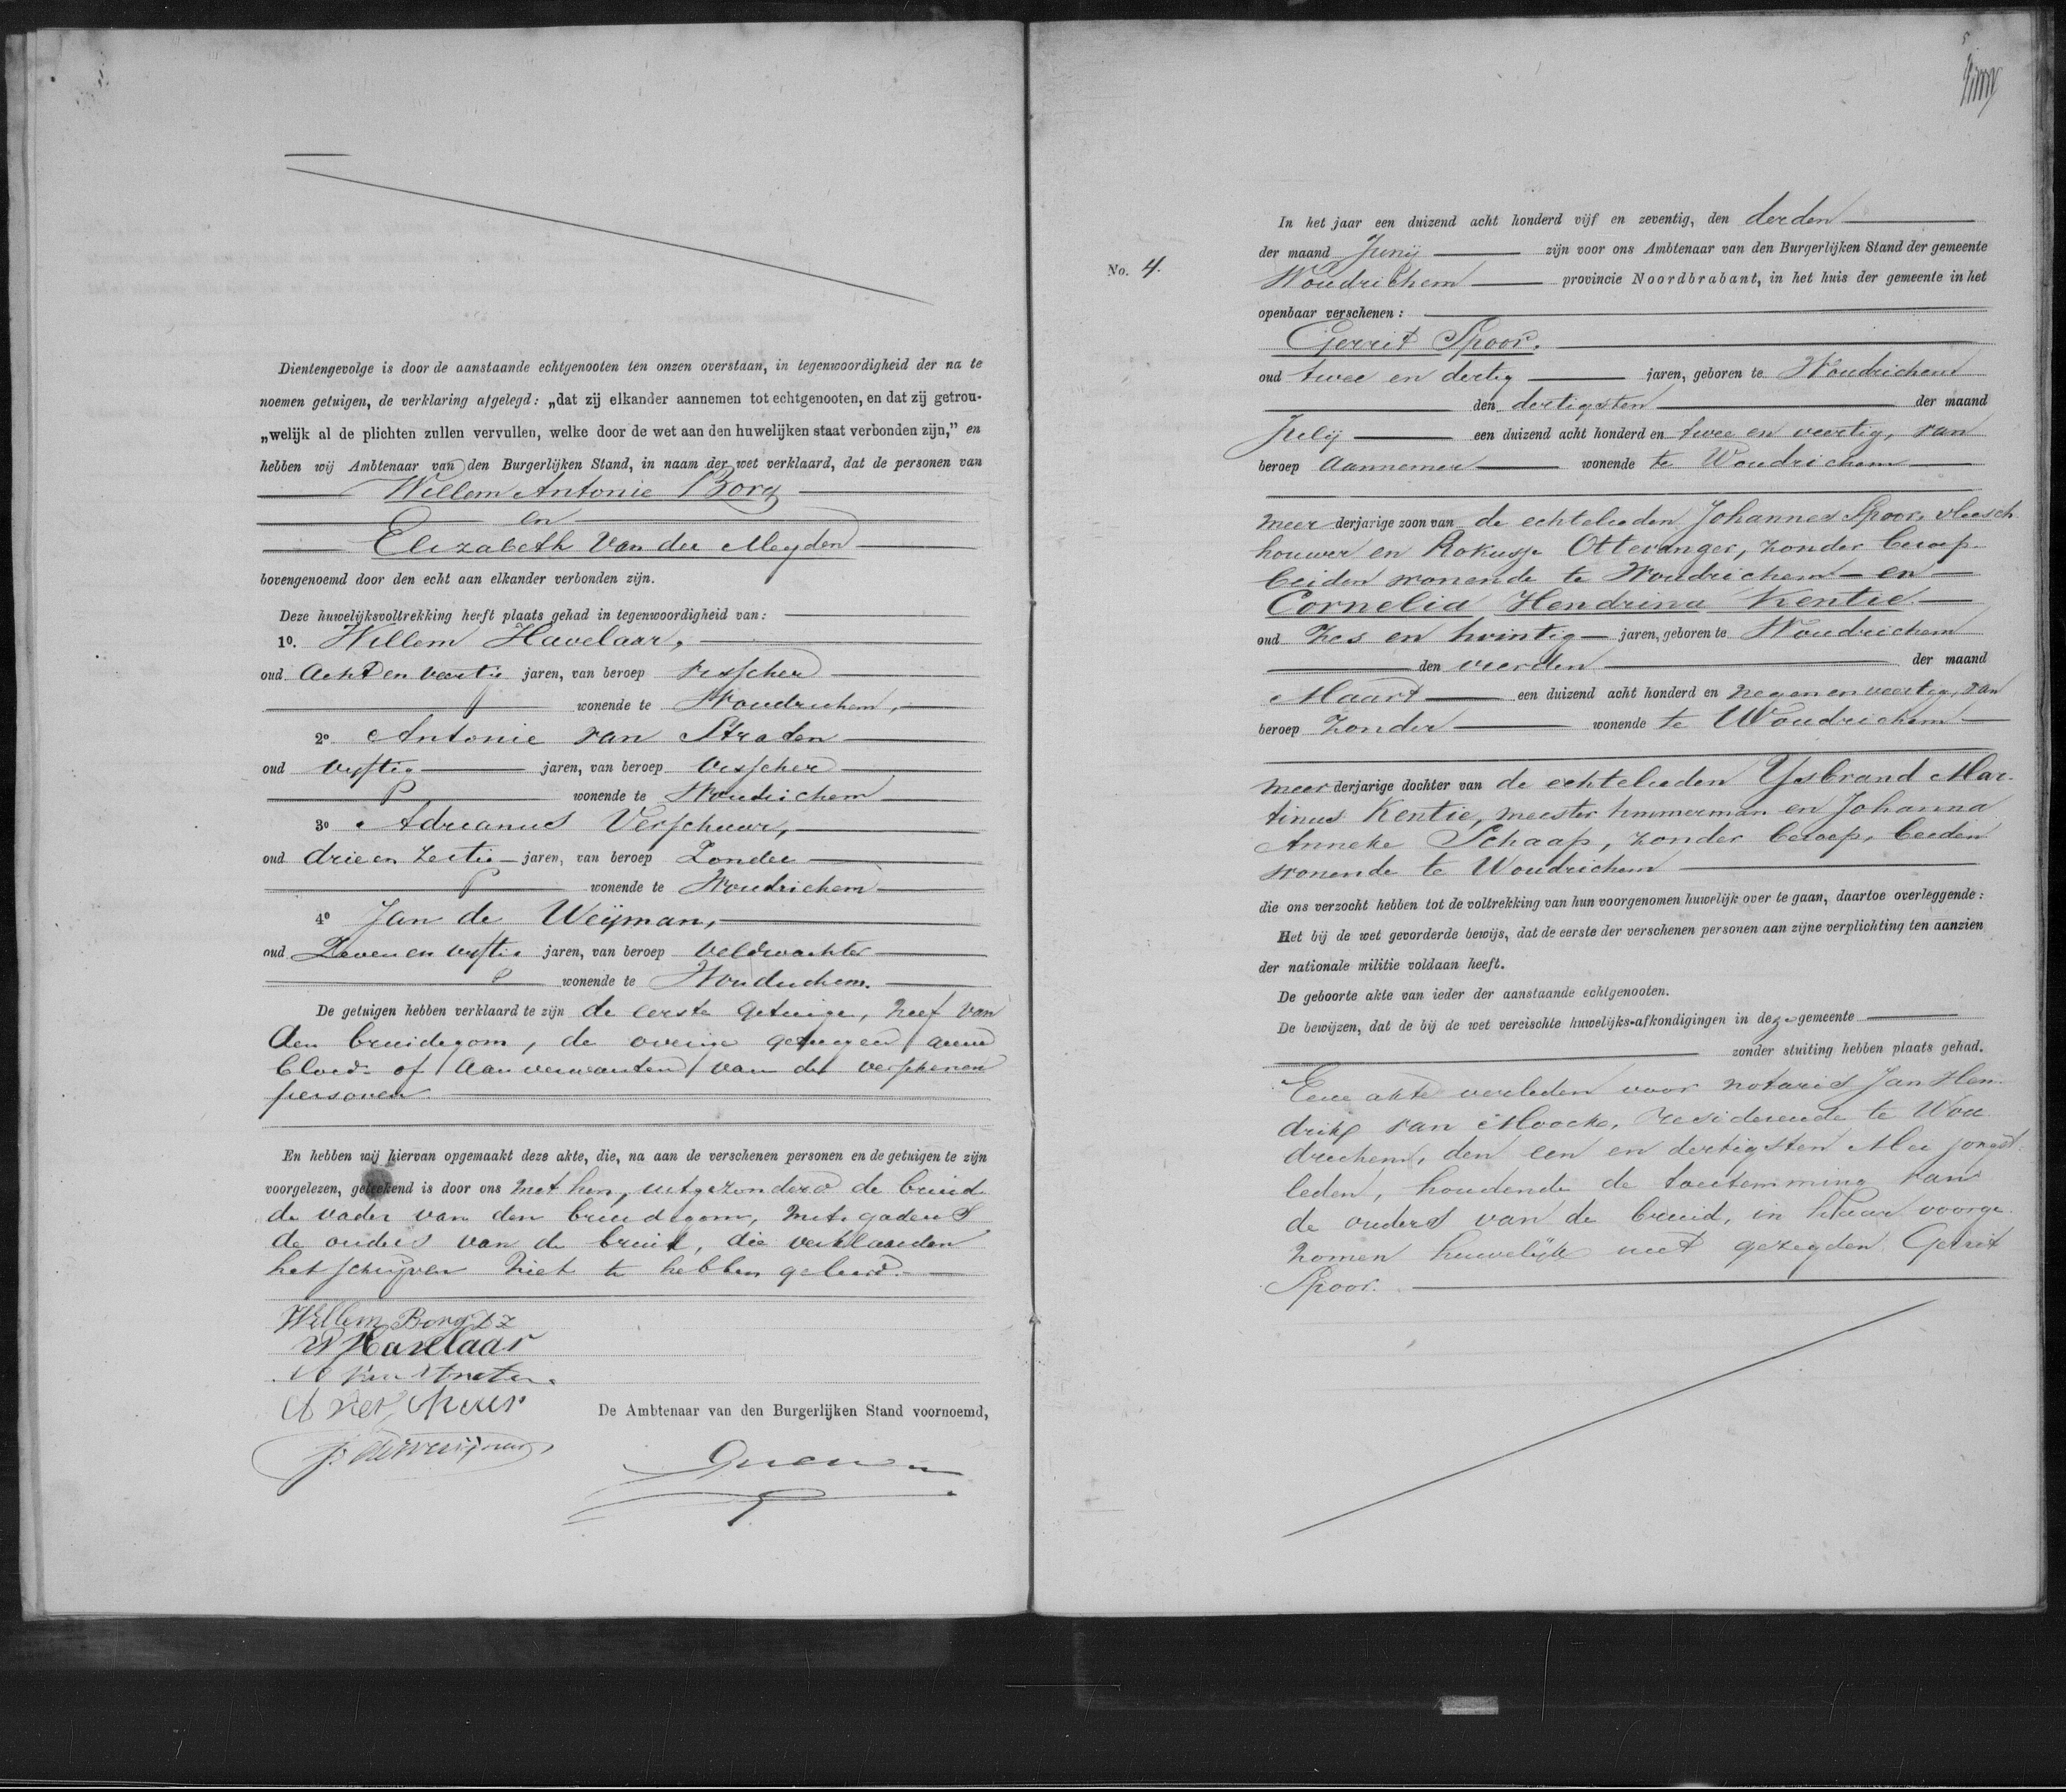 Dientengevolge is door de aanstaande echtgenooten ten onzen overstaan, in tegenwoordigheid der na te
noemen getuigen, de verklaring afgelegd: „dat zij elkander aannemen tot echtgenooten, en dat zij getrou-
„welijk al de plichten zullen vervullen, welke door de wet aan den huwelijken staat verbonden zijn,” en
hebben wij Ambtenaar van den Burgerlijken Stand, in naam der wet verklaard, dat de personen van
Willem Antonie Borg
en
Elizabeth van der Meyden
bovengenoemd door den echt aan elkander verbonden zijn.
Deze huwelijksvoltrekking heeft plaats gehad in tegenwoordigheid van:
1o. Willem Havelaar,
oud Acht en veertig jaren, van beroep visscher
wonende te Woudrichem,
2o. Antonie van Straten
oud vyftig jaren, van beroep visscher
wonende te Woudrichem
3o Adrianus Verschuur,
oud drie en zestig jaren, van beroep Zonder
wonende te Woudrichem
4o Jan de Weijman,
oud Zeven en vyftig jaren, van beroep veldwachter
wonende te Woudrichem.
De getuigen hebben verklaard te zijn de eerste getuige, neef van
den bruidegom, de overige getuigen geene
bloed- of aanverwanten van de verschenen
personen.
En hebben wij hiervan opgemaakt deze akte, die, na aan de verschenen personen en de getuigen te zijn
voorgelezen, geteekend is door ons met hen, uitgezonderd de bruid
de vader van den bruidegom, mitsgaders
de ouders van de bruid, die verklaarden
het schryven niet te hebben geleerd.
Willem Borg
W Havelaar
A van Straten
A Verschuur
J. de Weijman
De Ambtenaar van den Burgerlijken Stand voornoemd,
5
No. 4.
In het jaar een duizend acht honderd vijf en zeventig, den derden
der maand Junij zijn voor ons Ambtenaar van den Burgerlijken Stand der gemeente
Woudrichem provincie Noordbrabant, in het huis der gemeente in het
openbaar verschenen:
Gerrit Spoor.
oud twee en dertig jaren, geboren te Woudrichem
den dertigsten der maand
Julij een duizend acht honderd en twee en veertig, van
beroep aannemer wonende te Woudrichem
meer derjarige zoon van de echtelieden Johannes Spoor, vleesch
houwer en Rokusje Ottevanger, zonder beroep
beiden wonende te Woudrichem en
Cornelia Hendrina Kentie
oud Zes en twintig jaren, geboren te Woudrichem
den vierden der maand
Maart een duizend acht honderd en negen en veertig, van
beroep Zonder wonende te Woudrichem
meer derjarige dochter van de echtelieden Ysbrand Mar-
tinus Kentie, meester timmerman en Johanna
Anneke Schaap, zonder beroep, beiden
wonende te Woudrichem
die ons verzocht hebben tot de voltrekking van hun voorgenomen huwelijk over te gaan, daartoe overleggende:
Het bij de wet gevorderde bewijs, dat de eerste der verschenen personen aan zijne verplichting ten aanzien
der nationale militie voldaan heeft.
De geboorte akte van ieder der aanstaande echtgenooten.
De bewijzen, dat de bij de wet vereischte huwelijks-afkondigingen in deze gemeente
zonder stuiting hebben plaats gehad.
Eene akte verleden voor notaris Jan Hen-
drik van Moocke, resideerende te Wou
drichem, den een en dertigsten Mei jongst-
leden, houdende de toestemming van
de ouders van de bruid, in haar voorge-
nomen huwelijk met gezegden Gerrit
Spoor.